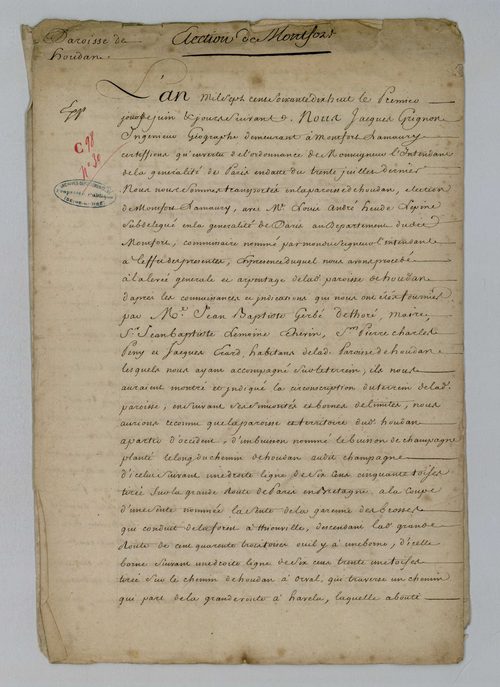 Paroisse de
houdan.
Election de Montfort
L'an mil sept cent soixante dix huit le Premier
jour de juin & jours suivant s. Nous Jacques Grignon
Ingenieur Géographe demeurant à Monfort Lamaury
certiffions qu'en vertu de l'ordonnance de Monseigneur l'Intendant
de la generalité de Paris en datte du trente juillet dernier
Nous nous sommes transportée en la paroisse de houdan, election
de Monfort Lamaury, avec Mr. Louis André heude Lepine
Subdelegué en la generalité de Paris au Departement dudit
Monfort, commissaire nommé par mondit seigneur l'intendant
à l'effet des presentes, en presence duquel nous avons procédé
à la levée generale et arpentage de lad. paroisse de houdan
d'apres les connoissances et indications qui nous ont étés fournies
par Mr. Jean Baptiste Gerbé de thoré, maire,
Srs. Jean Baptiste Lemoine Chevin, Srs. Pierre Charles
Peny et Jacques Icard habitans de lad. Paroisse de houdan
lesquels nous ayant accompagné sur le terrein, ils nous
auraient montré et indiqué la circonscription du terrein de lad.
paroisse, en suivant ses sinuosités et bornes de limites, nous
aurions reconnu que la paroisse et territoire dud. houdan
a partir d'occident, d'un buisson nommé le buisson de champagne
planté le long du chemin de houdan audit champagne
d'icelui suivant une droite ligne de six cens cinquante toises
tirée sur la grande Route de Paris en Bretagne, a la coupe
d'une sente nommée la sente de la garenne des brosses
qui conduit de la forest à thionville, descendant lad. grande
Route de cent quarente trois toises ou il y à une borne, d'icelle
borne suivant une droite ligne de six cent trente une toises
tirée sur le chemin de houdan à orval, qui traverse un chemin
qui part de la grande route à havelu, laquelle aboutit
C 98
n° 30